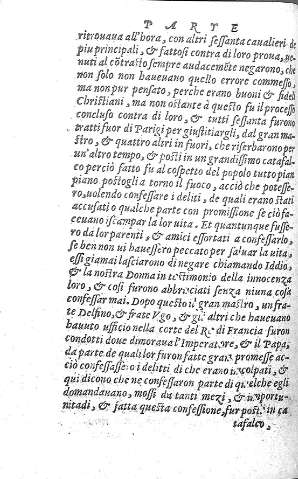 PARTE
ritrouaua all'hora, con altri sessanta caualieri de
piu principali, & fattosi contra di loro proua, ue-
nuti al cõtrasto sempre audacemẽte negarono, che
non solo non haueuano quello errore commesso,
ma non pur pensato, perche erano buoni & fideli
Christiani, ma non ostante à questo fu il processo
concluso contra di loro, & tutti sessanta furono
tratti fuor di Parigi per giustitiargli, dal gran ma-
stro, & quattro altri in fuori, che riserbarono per
un'altro tempo, & posti in un grandissimo catafal-
co perciò fatto fu al cospetto del popolo tutto pian
piano postogli à torno il fuoco, acciò che potesse-
ro, uolendo confessare i deliti, de quali erano stati
accusati ò qualche parte con promissione se ciò fa-
ceuano iscampar la lor uita. Et quantunque fusse-
ro da lor parenti, & amici essortati a confessarlo,
se ben non ui hauessero peccato per saluar la uita,
essi giamai lasciarono di negare chiamando Iddio,
& la nostra Donna in testimonio della innocenza
loro, & cosi furono abbrusciati senza niuna cosa
confessar mai. Dopo questo il gran mastro, un fra-
te Delfino, & frate Vgo, & gli altri che haueuano
hauuto officio nella corte del Re di Francia furon
condotti doue dimoraua l'Imperatore, & il Papa,
da parte de quali lor furon fatte gran promesse ac-
ciò confessassero i delitti di che erano incolpati, &
qui dicono che ne confessaron parte di quelche egli
domandauano, mossi da tanti mezi, & importu-
nitadi, & fatta questa confessione, fur posti in ca
tafalco,